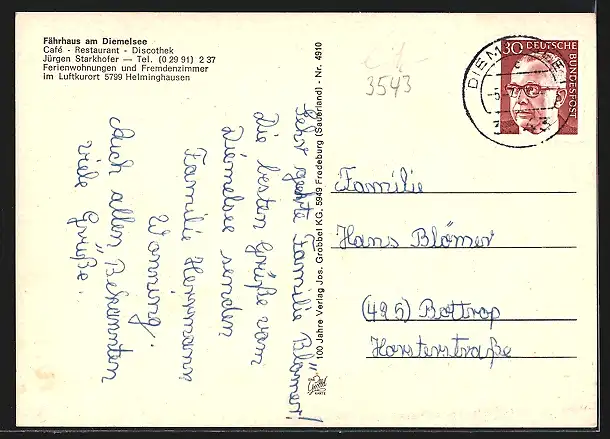 Fährhaus am Diemelsee
Café - Restaurant - Discothek
Jürgen Starkhofer — Tel. (0 29 91) 2 37
Ferienwohnungen und Fremdenzimmer
im Luftkurort 5799 Helminghausen
3543
30 DEUTSCHE
BUNDESPOST
DIEM
Sehr geehrte Familie Blömer!
Die besten Grüße vom
Diemelsee senden
Familie Heinemann,
Wonnung.
Auch allen "Bekannten
viele Grüße.
100 Jahre Verlag Jos. Grobbel KG, 5949 Fredeburg (Sauerland) - Nr. 4910
Familie
Hans Blömer
(495) Bottrop
Horsterstraße